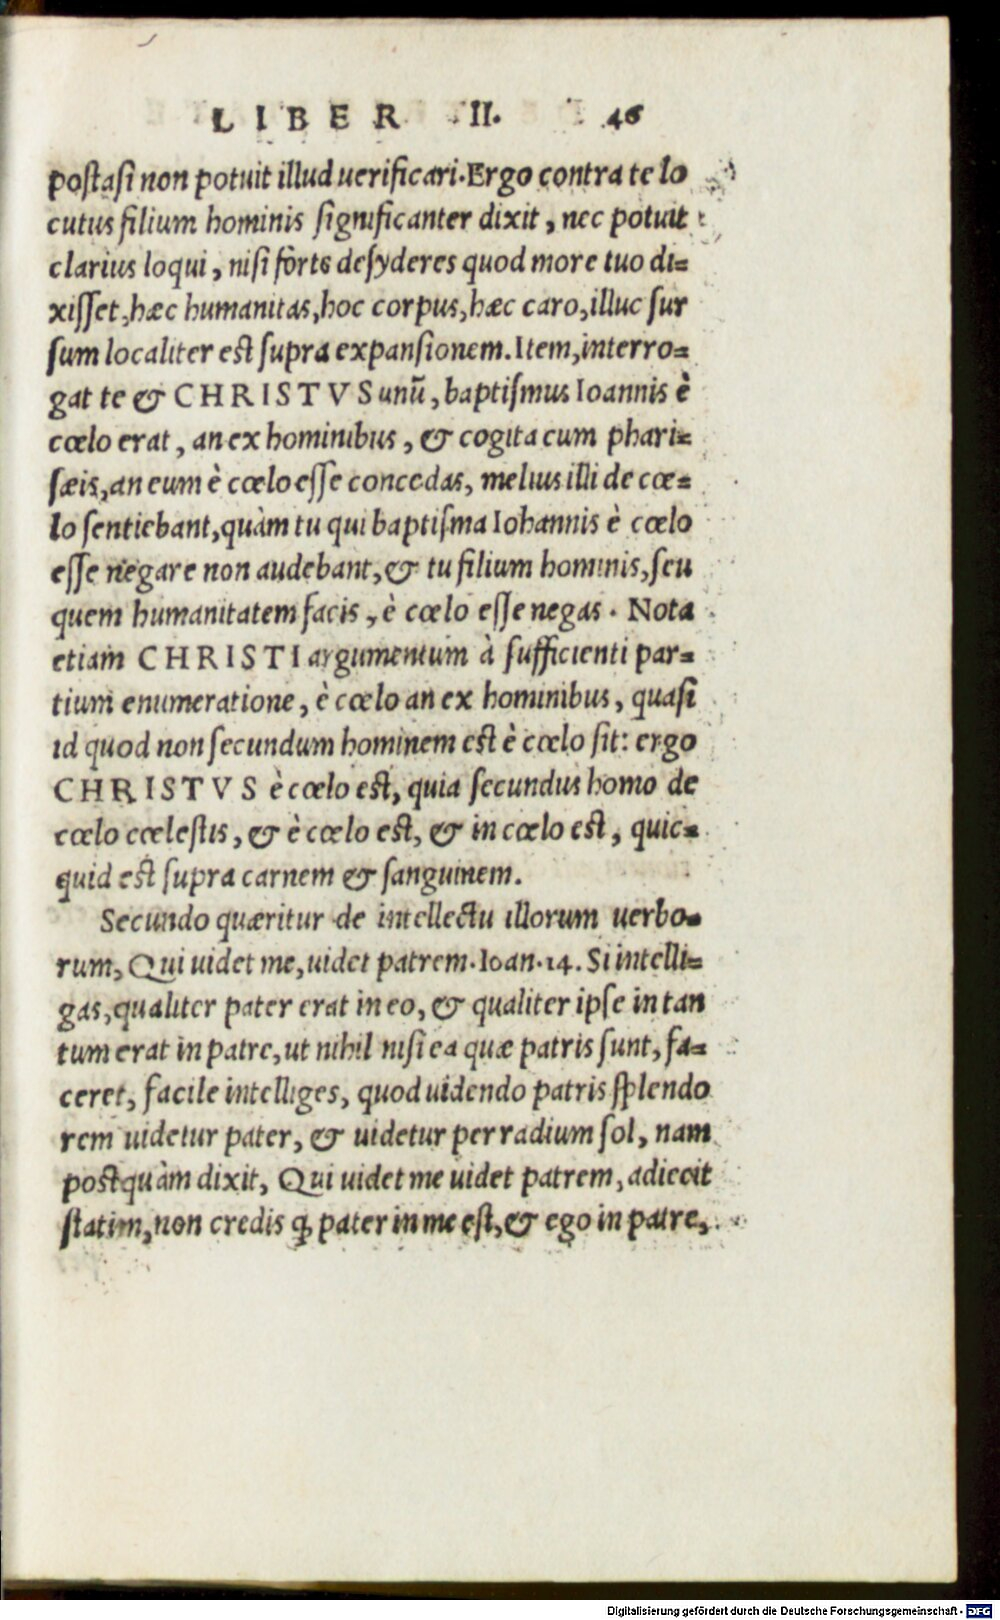 LIBER II. 46
postasi non potuit illud uerificari. Ergo contra te lo
cutus filium hominis significanter dixit, nec potuit
clarius loqui, nisi forte desyderes quod more tuo di=
xisset, hæc humanitas, hoc corpus, hæc caro, illuc sur
sum localiter est supra expansionem. Item, interro=
gat te & CHRISTVS unū, baptismus Ioannis è
cœlo erat, an ex hominibus, & cogita cum phari=
sæis, an eum è cœlo esse concedas, melius illi de cœ=
lo sentiebant, quàm tu qui baptisma Iohannis è cœlo
esse negare non audebant, & tu filium hominis, seu
quem humanitatem facis, è cœlo esse negas. Nota
etiam CHRISTI argumentum à sufficienti par=
tium enumeratione, è cœlo an ex hominibus, quasi
id quod non secundum hominem est è cœlo sit: ergo
CHRISTVS è cœlo est, quia secundus homo de
cœlo cœlestis, & è cœlo est, & in cœlo est, quic=
quid est supra carnem & sanguinem.
Secundo quæritur de intellectu illorum uerbo=
rum, Qui uidet me, uidet patrem. Ioan. 14. Si intelli=
gas, qualiter pater erat in eo, & qualiter ipse in tan
tum erat in patre, ut nihil nisi ea quæ patris sunt, fa=
ceret, facile intelliges, quod uidendo patris splendo
rem uidetur pater, & uidetur per radium sol, nam
postquàm dixit, Qui uidet me uidet patrem, adiecit
statim, non credis ꝙ pater in me est, & ego in patre,
Digitalisierung gefördert durch die Deutsche Forschungsgemeinschaft - DFG